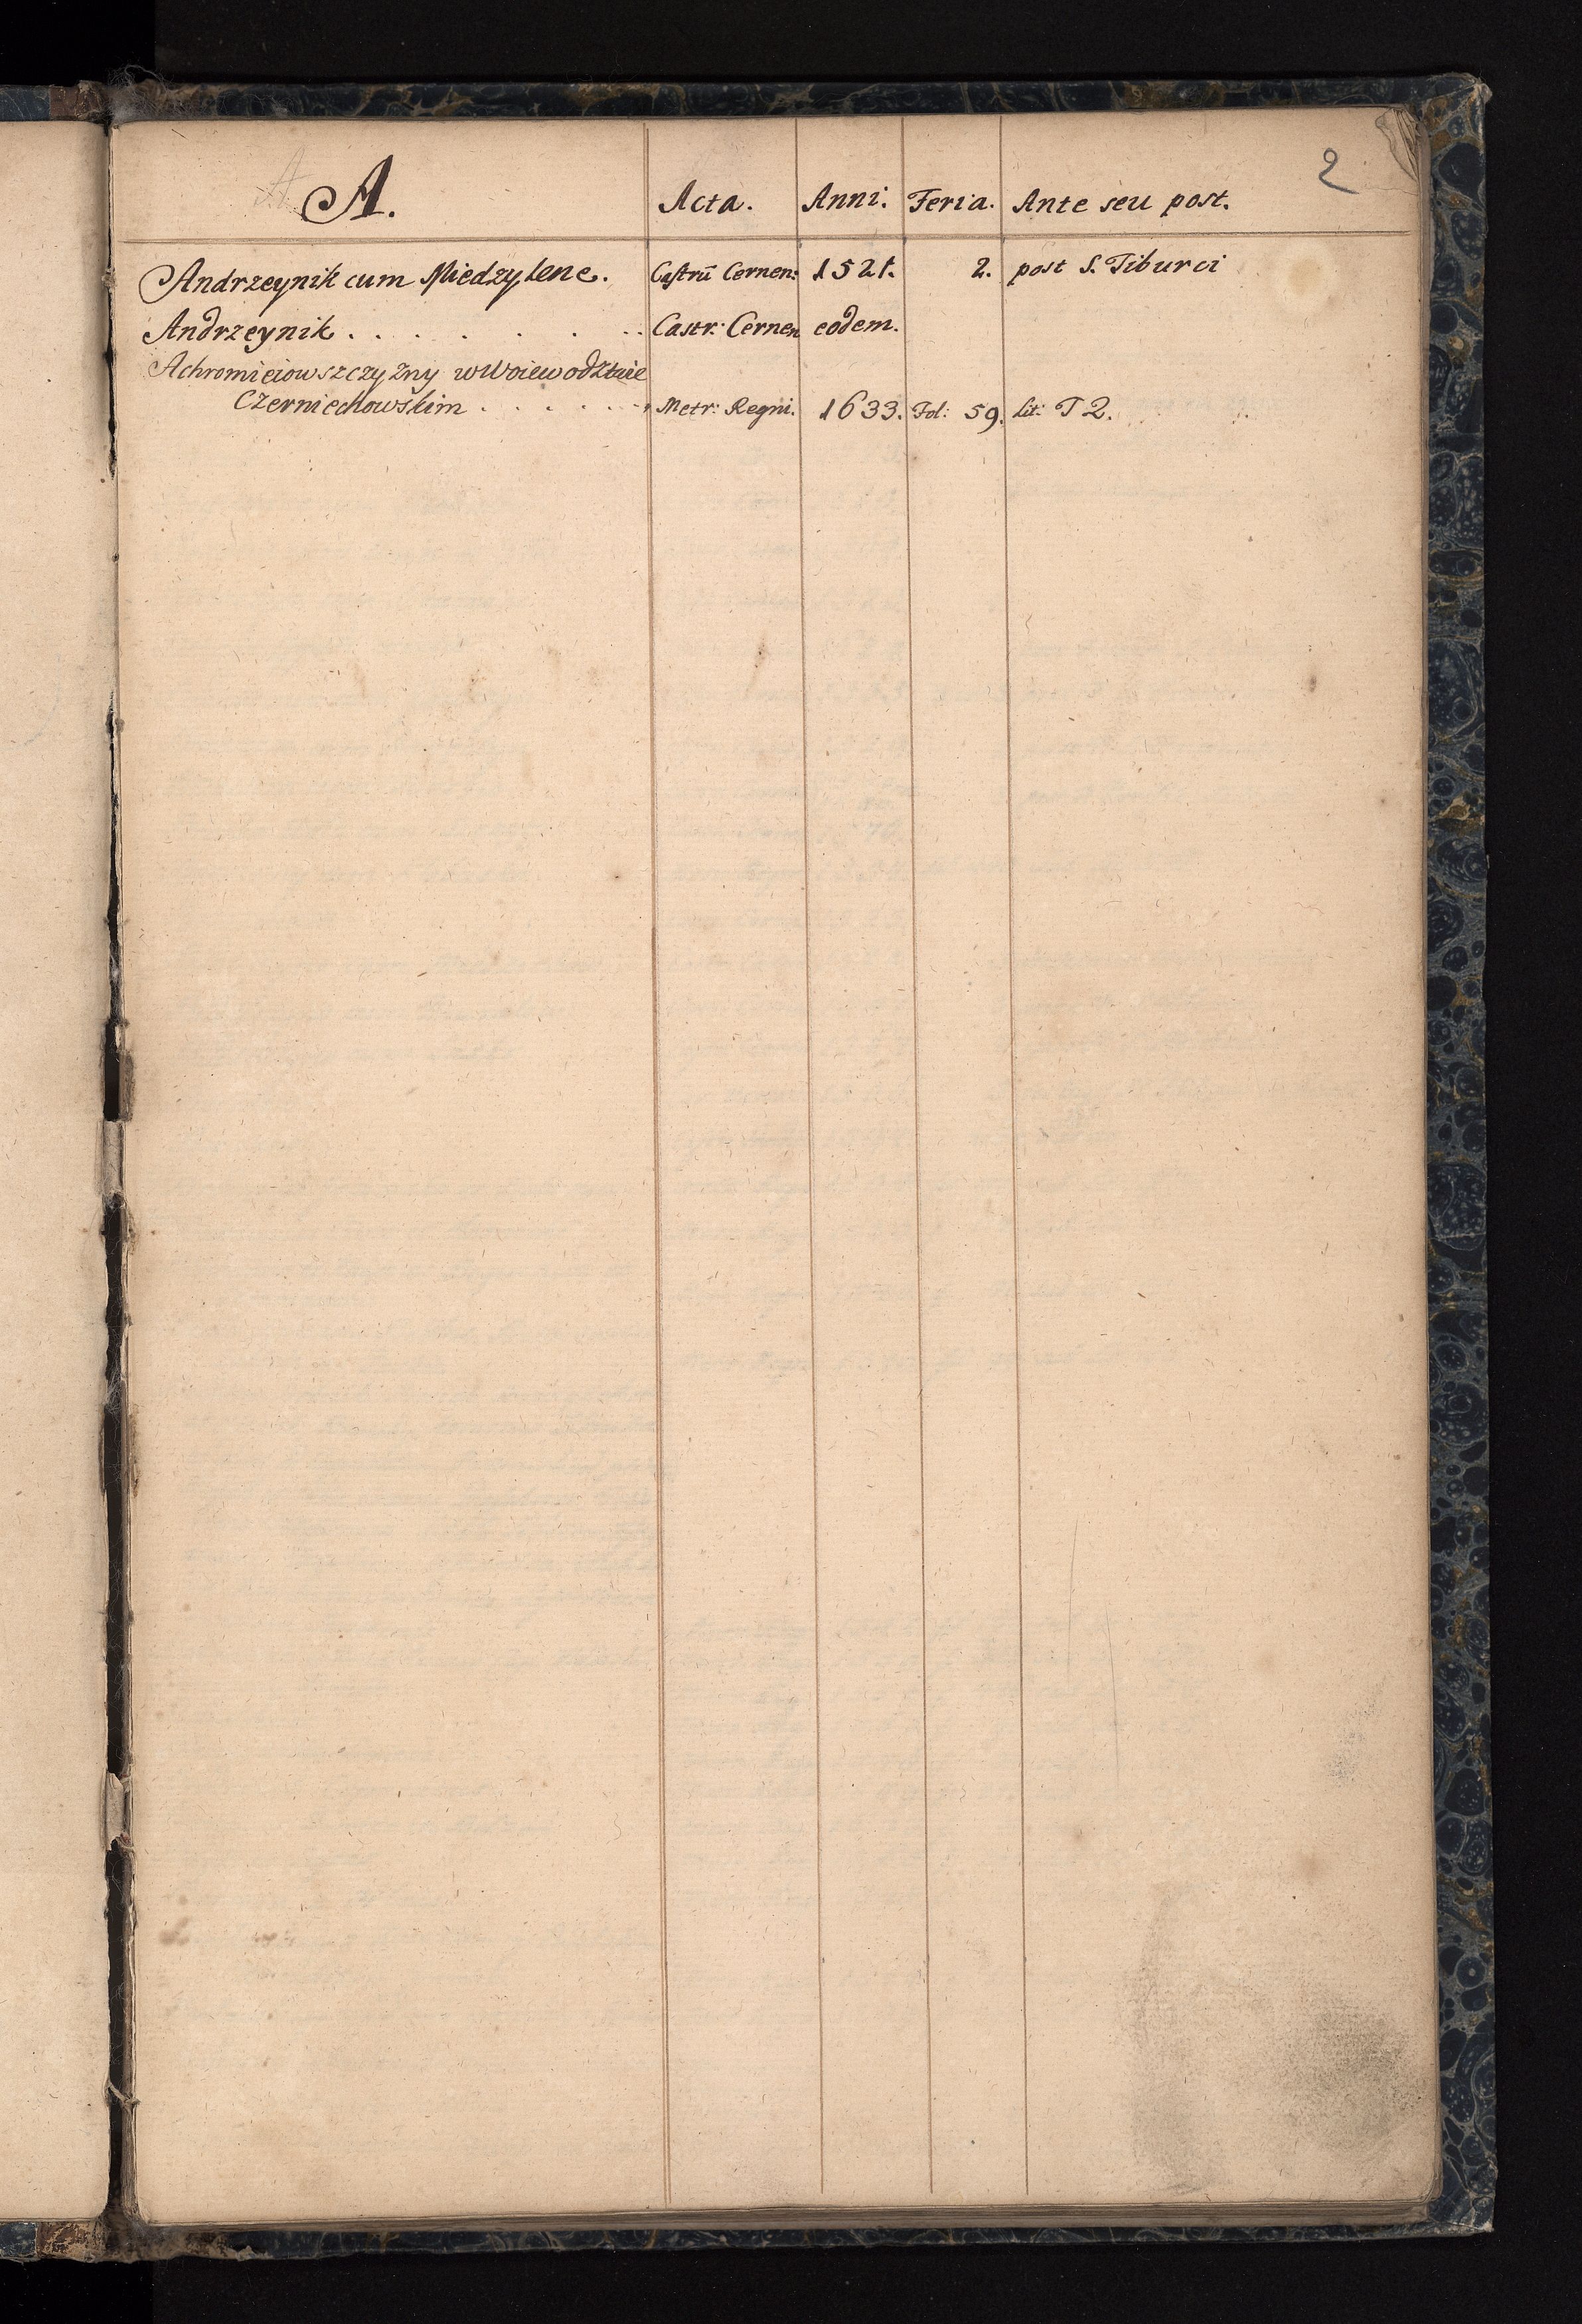 2
A. Acta. Anni. Feria. Ante seu post.
Andrzeynik cum Miedzylene. Castrū Cernen: 1521. 2. post S. Tiburci
Andrzeynik . . . . . . . . Castr: Cernen eodem.
Achromieiowszczyzny w Woiewodztwie
Czerniechowskim . . . . . . Metr: Regni. 1633. Fol: 59. Lit: T 2.